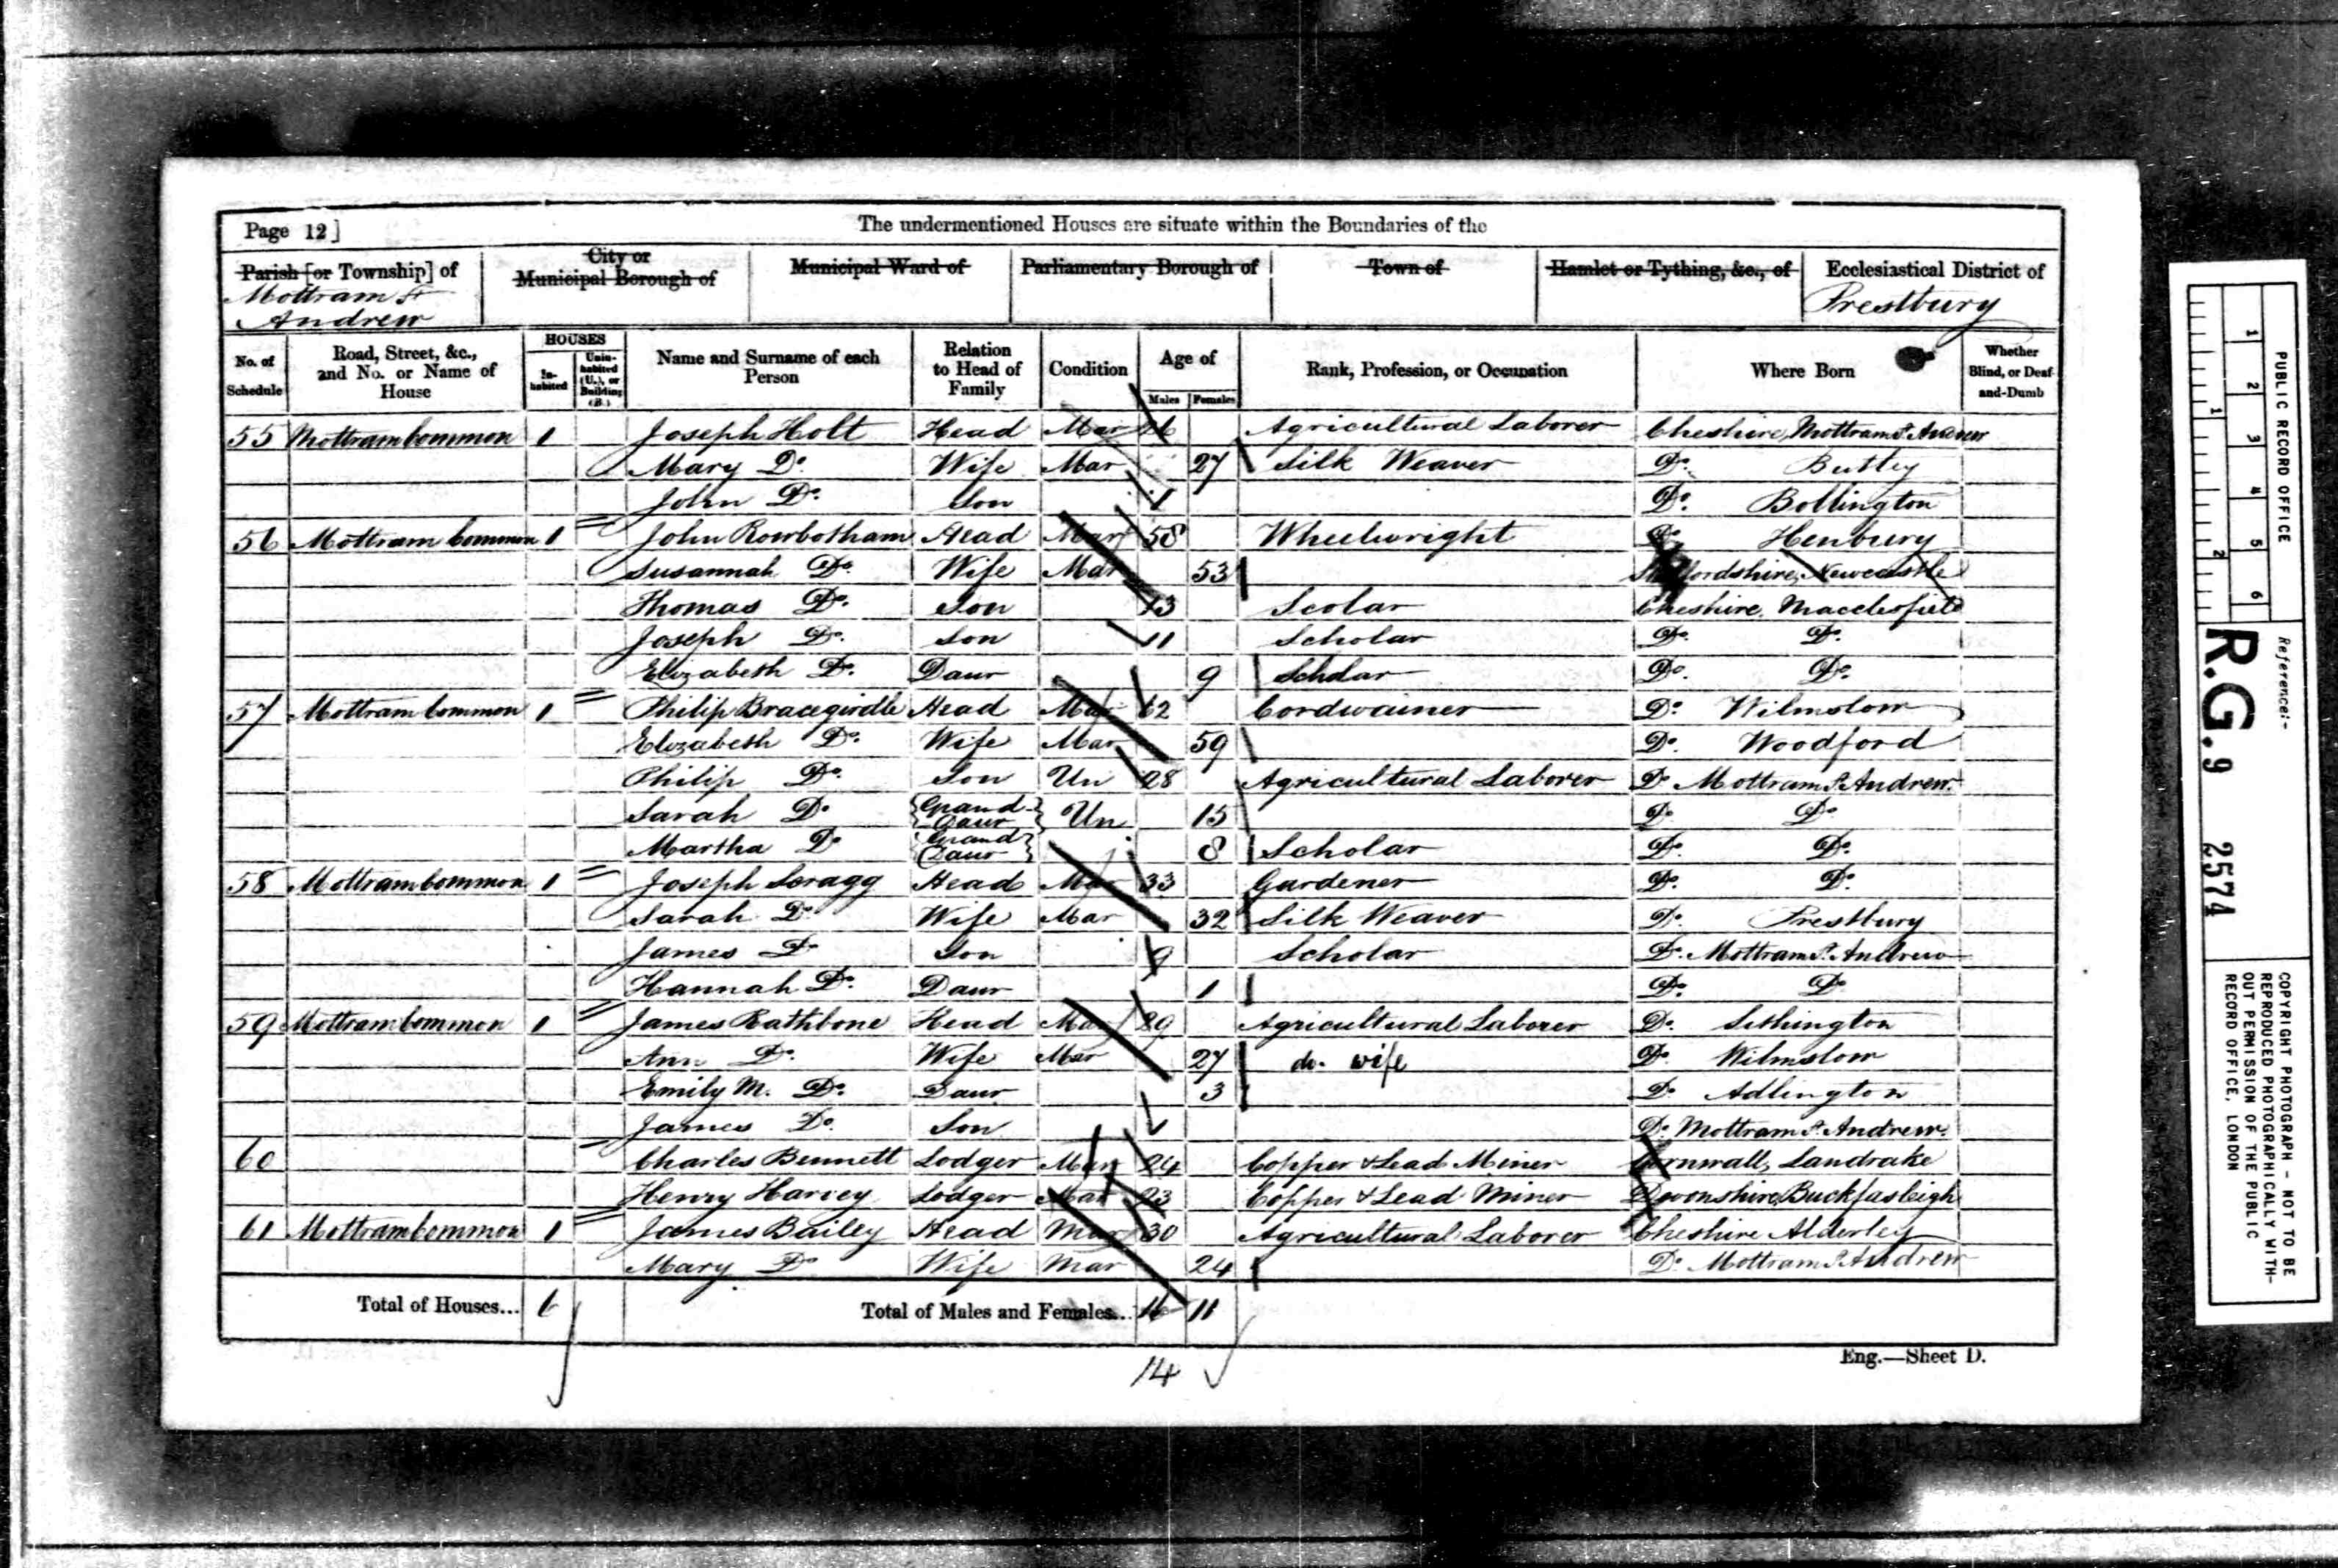 Page 12]
The undermentioned Houses are situate within the Boundaries of the
Parish [or Township] of
Mottram St
Andrew
City or
Municipal Borough of
Municipal Ward of
Parliamentary Borough of
Town of
Hamlet or Tything, &c., of
Ecclesiastical District of
Prestbury
No. of Schedule
Road, Street, &c., and No. or Name of House
HOUSES
In-habited
Unin-habited (U.), or Building (B.)
Name and Surname of each Person
Relation to Head of Family
Condition
Age of
Males
Females
Rank, Profession, or Occupation
Where Born
Whether Blind, or Deaf-and-Dumb
55 Mottram Common 1 Joseph Holt Head Mar 26 Agricultural Laborer Cheshire, Mottram St. Andrew
Mary Do. Wife Mar 27 Silk Weaver Do. Butley
John Do. Son 1 Do. Bollington
56 Mottram Common 1 John Rowbotham Head Mar 58 Wheelwright Do. Henbury
Susannah Do. Wife Mar 53 Staffordshire, Newcastle
Thomas Do. Son 13 Scolar Cheshire, Macclesfield
Joseph Do. Son 11 Scholar Do. Do.
Elizabeth Do. Daur 9 Scholar Do. Do.
57 Mottram Common 1 Philip Bracegirdle Head Mar 62 Cordwainer Do. Wilmslow
Elizabeth Do. Wife Mar 59 Do. Woodford
Philip Do. Son Un 28 Agricultural Laborer Do. Mottram St. Andrew
Sarah Do. Grand Daur Un 15 Do. Do.
Martha Do. Grand Daur 8 Scholar Do. Do.
58 Mottram Common 1 Joseph Scragg Head Mar 33 Gardener Do. Do.
Sarah Do. Wife Mar 32 Silk Weaver Do. Prestbury
James Do. Son 9 Scholar Do. Mottram St. Andrew
Hannah Do. Daur 1 Do. Do.
59 Mottram Common 1 James Rathbone Head Mar 29 Agricultural Laborer Do. Sithington
Ann Do. Wife Mar 27 do. wife Do. Wilmslow
Emily M. Do. Daur 3 Do. Adlington
James Do. Son 1 Do. Mottram St. Andrew
60 Charles Bennett Lodger Mar 24 Copper & Lead Miner Cornwall, Landrake
Henry Harvey Lodger Mar 23 Copper & Lead Miner Devonshire, Buckfasleigh
61 Mottram Common 1 James Bailey Head Mar 30 Agricultural Laborer Cheshire Alderley
Mary Do. Wife Mar 24 Do. Mottram St. Andrew
Total of Houses... 6
Total of Males and Females... 11
14
Eng.—Sheet D.
PUBLIC RECORD OFFICE
1 2 3 4 5 6
1 2
Reference:-
R.G. 9 2574
COPYRIGHT PHOTOGRAPH - NOT TO BE
REPRODUCED PHOTOGRAPHICALLY WITH-
OUT PERMISSION OF THE PUBLIC
RECORD OFFICE, LONDON